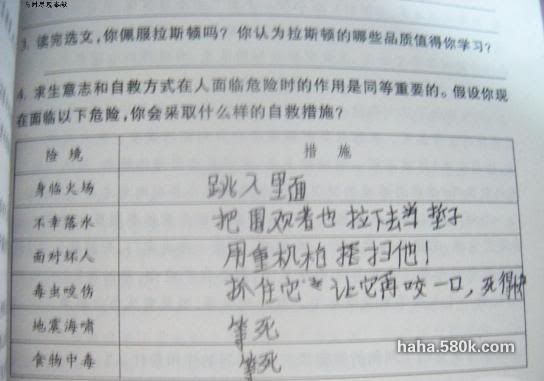 3. 读完选文,你佩服拉斯顿吗? 你认为拉斯顿的哪些品质值得你学习?
4. 求生意志和自救方式在人面临危险时的作用是同等重要的。假设你现
在面临以下危险,你会采取什么样的自救措施?
险 境 措 施
身临火场 跳入里面
不幸落水 把围观者也拉下去当垫子
面对坏人 用重机枪扫他!
毒虫咬伤 抓住它 让它再咬一口,死得快
地震海啸 等死
食物中毒 等死
haha.580k.com